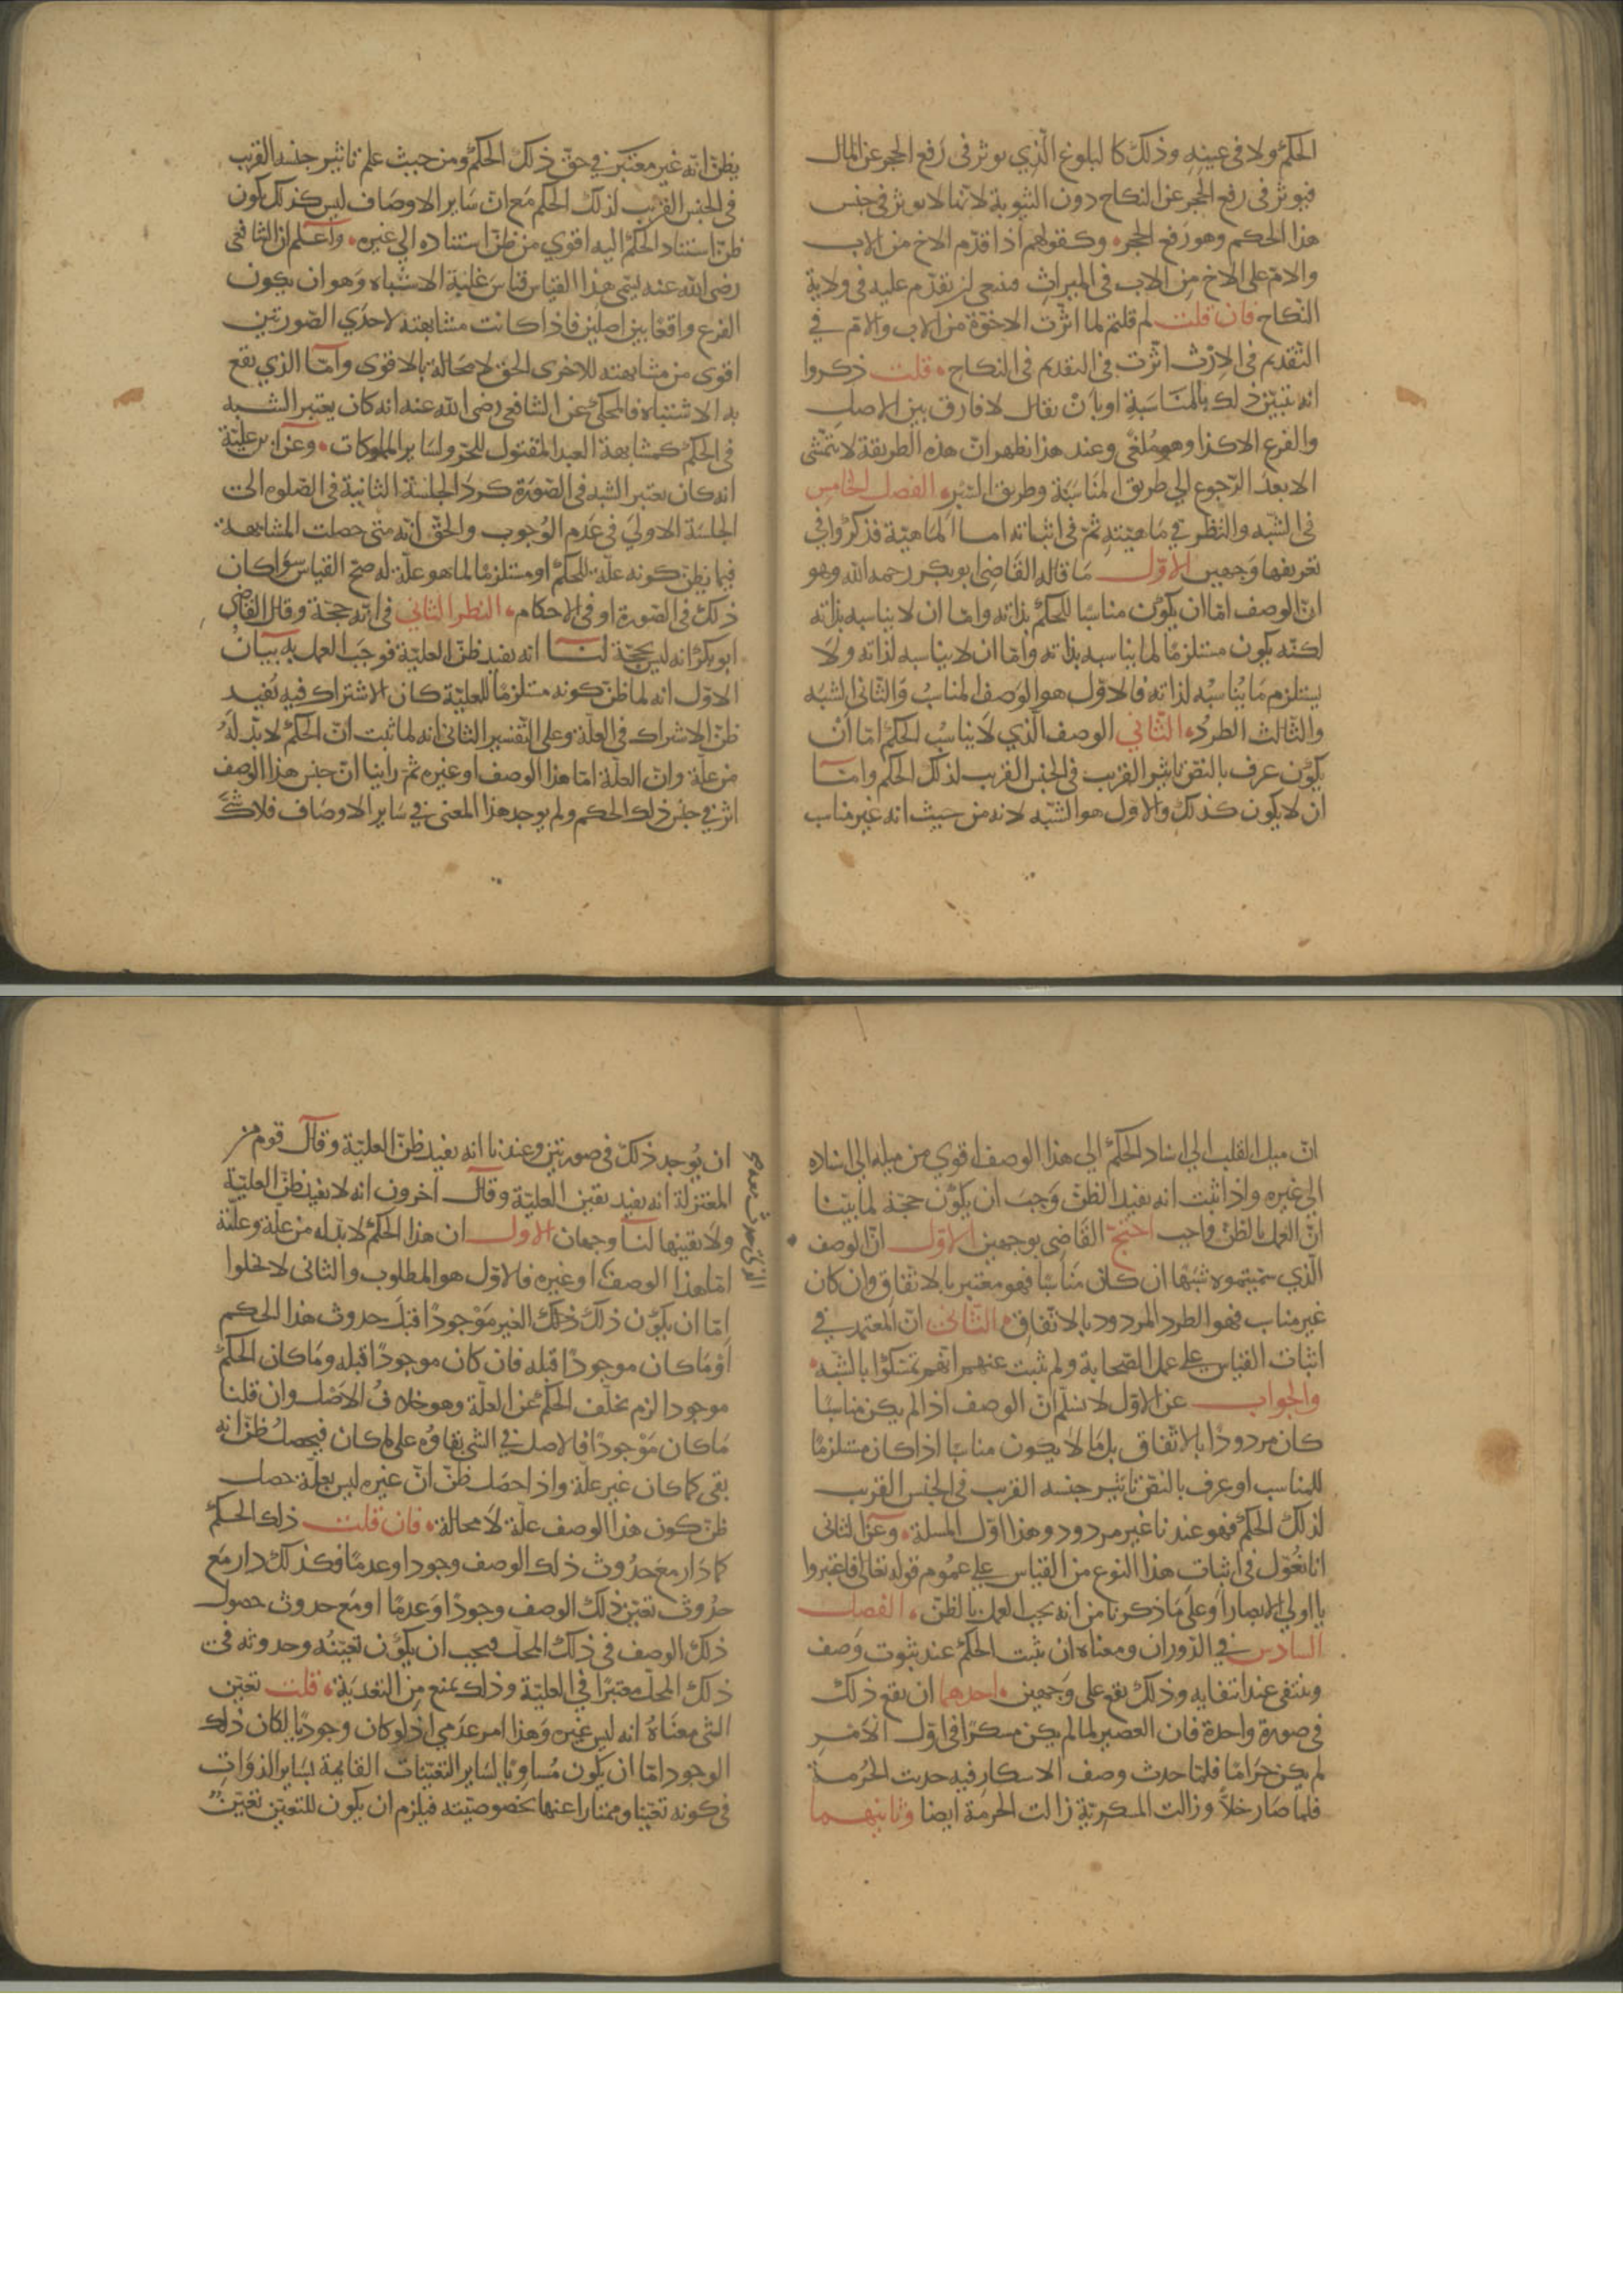 الحكم ولا في عينه وذلك كالبلوغ الذي يوثر في رفع الحجر عن المال
فيوثر في رفع الحجر عن النكاح دون الثيوبة لانها لا يوثر في جنس
هذا الحكم وهو رفع الحجر وكقولهم اذا قدم الاخ من الاب
والام على الاخ من الاب في الميراث فينبغي ان يقدم عليه في ولاية
النكاح فان قلت لم قلتم لما اثرت الاخوة من الاب والام في
التقديم في الارث اثرت في التقديم في النكاح قلت ذكروا
انه يتبين ذلك بالمناسبة او بان يقال لا فارق بين الاصل
والفرع الا كذا وهو ملغى وعند هذا يظهر ان هذه الطريقة لا تتمشى
الا بعد الرجوع الي طريق المناسبة وطريق السبر الفصل الخامس
في الشبه والنظر في ماهيته ثم في اثباته اما الماهية فذكروا في
تعريفها وجهين الاول ما قاله القاضي ابو بكر رحمه الله وهو
ان الوصف اما ان يكون مناسبا للحكم بذاته واما ان لا يناسبه بذاته
لكنه يكون مستلزما لما يناسبه بذاته واما ان لا يناسبه لذاته ولا
يستلزم ما يناسبه لذاته فالاول هو الوصف المناسب والثاني الشبه
والثالث الطرد الثاني الوصف الذي لا يناسب الحكم اما ان
يكون عرف بالنص تاثير القريب في الجنس القريب لذلك الحكم واما
ان لا يكون كذلك والاول هو الشبه لانه من حيث انه غير مناسب
يظن انه غير معتبر في حق ذلك الحكم ومن حيث علم تاثير جنسه القريب
في الجنس القريب لذلك الحكم مع ان ساير الاوصاف ليس كذلك يكون
ظن استناد الحكم اليه اقوي من ظن استناده الي غيره واعلم ان الشافعي
رضي الله عنه يسمى هذا القياس قياس غلبة الاشباه وهو ان يكون
الفرع واقعا بين اصلين فاذا كانت مشابهته لاحدي الصورتين
اقوى من مشابهته للاخرى الحق لا محالة بالاقوى واما الذي يقع
به الاشتباه فالمحكى عن الشافعي رضي الله عنه انه كان يعتبر الشبه
في الحكم كمشابهة العبد المقتول للحر ولساير المملوكات وعن ابن علية
انه كان يعتبر الشبه في الصورة كرد الجلسة الثانية في الصلوه الى
الجلسة الاولي في عدم الوجوب والحق انه متى حصلت المشابهة
فيما يظن كونه علة للحكم او مستلزما لما هو علة له صح القياس سوا كان
ذلك في الصورة او في الاحكام النظر الثاني في انه حجة وقال القاضي
ابو بكر انه ليس بحجة لنا انه يفيد ظن العلية فوجب العمل به بيان
الاول انه لما ظن كونه مستلزما للعلية كان الاشتراك فيه يفيد
ظن الاشراك في العلة وعلى التفسير الثاني انه لما ثبت ان الحكم لا بد له
من علة وان العلة اما هذا الوصف او غيره ثم راينا ان جنس هذا الوصف
اثر في جنس ذلك الحكم ولم يوجد هذا المعنى في ساير الاوصاف فلا شك
ان ميل القلب الي اسناد الحكم الي هذا الوصف اقوي من ميله الي اسناده
الي غيره واذا ثبت انه يفيد الظن وجب ان يكون حجة لما بينا
ان العمل بالظن واجب احتج القاضي بوجهين الاول ان الوصف
الذي سميتموه شبها ان كان مناسبا فهو معتبر بالاتفاق وان كان
غير مناسب فهو الطرد المردود بالاتفاق الثاني ان المعتمد في
اثبات القياس على عمل الصحابة ولم يثبت عنهم انهم تمسكوا بالشبه
والجواب عن الاول لا نسلم ان الوصف اذا لم يكن مناسبا
كان مردودا بالاتفاق بل ما لا يكون مناسبا اذا كان مستلزما
للمناسب او عرف بالنص تاثير جنسه القريب في الجنس القريب
لذلك الحكم فهو عندنا غير مردود وهذا اول المسلة وعن الثاني
انا نعول في اثبات هذا النوع من القياس على عموم قوله تعالى فاعتبروا
يا اولي الابصار وعلى ما ذكرنا من انه يجب العمل بالظن الفصل
السادس في الدوران ومعناه ان ثبت الحكم عند ثبوت وصف
وينتفي عند انتفايه وذلك يقع على وجهين احدهما ان يقع ذلك
في صورة واحدة فان العصير لما لم يكن مسكرا في اول الامر
لم يكن حراما فلما حدث وصف الاسكار فيه حدثت الحرمة
فلما صار خلا وزالت المسكرية زالت الحرمة ايضا وثانيهما
ان يوجد ذلك في صورتين وعندنا انه يفيد ظن العلية وقال قوم من
المعتزلة انه يفيد يقين العلية وقال اخرون انه لا يفيد ظن العلية
ولا يقينها لنا وجهان الاول ان هذا الحكم لا بد له من علة وعلته
اما هذا الوصف او غيره فالاول هو المطلوب والثاني لا يخلوا
اما ان يكون ذلك ذلك الغير موجودا قبل حدوث هذا الحكم
او ما كان موجودا قبله فان كان موجودا قبله وما كان الحكم
موجودا لزم تخلف الحكم عن العلة وهو خلاف الاصل وان قلنا
ما كان موجودا فالاصل في الشي بقاوه على ما كان فيحصل ظن انه
بقي كما كان غير علة واذا حصل ظن ان غيره ليس بعلة حصل
ظن كون هذا الوصف علة لا محالة فان قلت ذلك الحكم
كما دار مع حدوث ذلك الوصف وجودا وعدما فكذلك دار مع
حدوث تعين ذلك الوصف وجودا وعدما او مع حدوث حصول
ذلك الوصف في ذلك المحل فيجب ان يكون تعينه وحدوثه في
ذلك المحل معتبرا في العلية وذلك يمنع من التعدية قلت تعين
الشي معناه انه ليس غيره وهذا امر عدمي اذ لو كان وجوديا لكان ذلك
الوجود اما ان يكون مساويا لساير التعينات القايمة بساير الذوات
في كونه تعينا وممتازا عنها بخصوصيته فيلزم ان يكون للتعين تعين